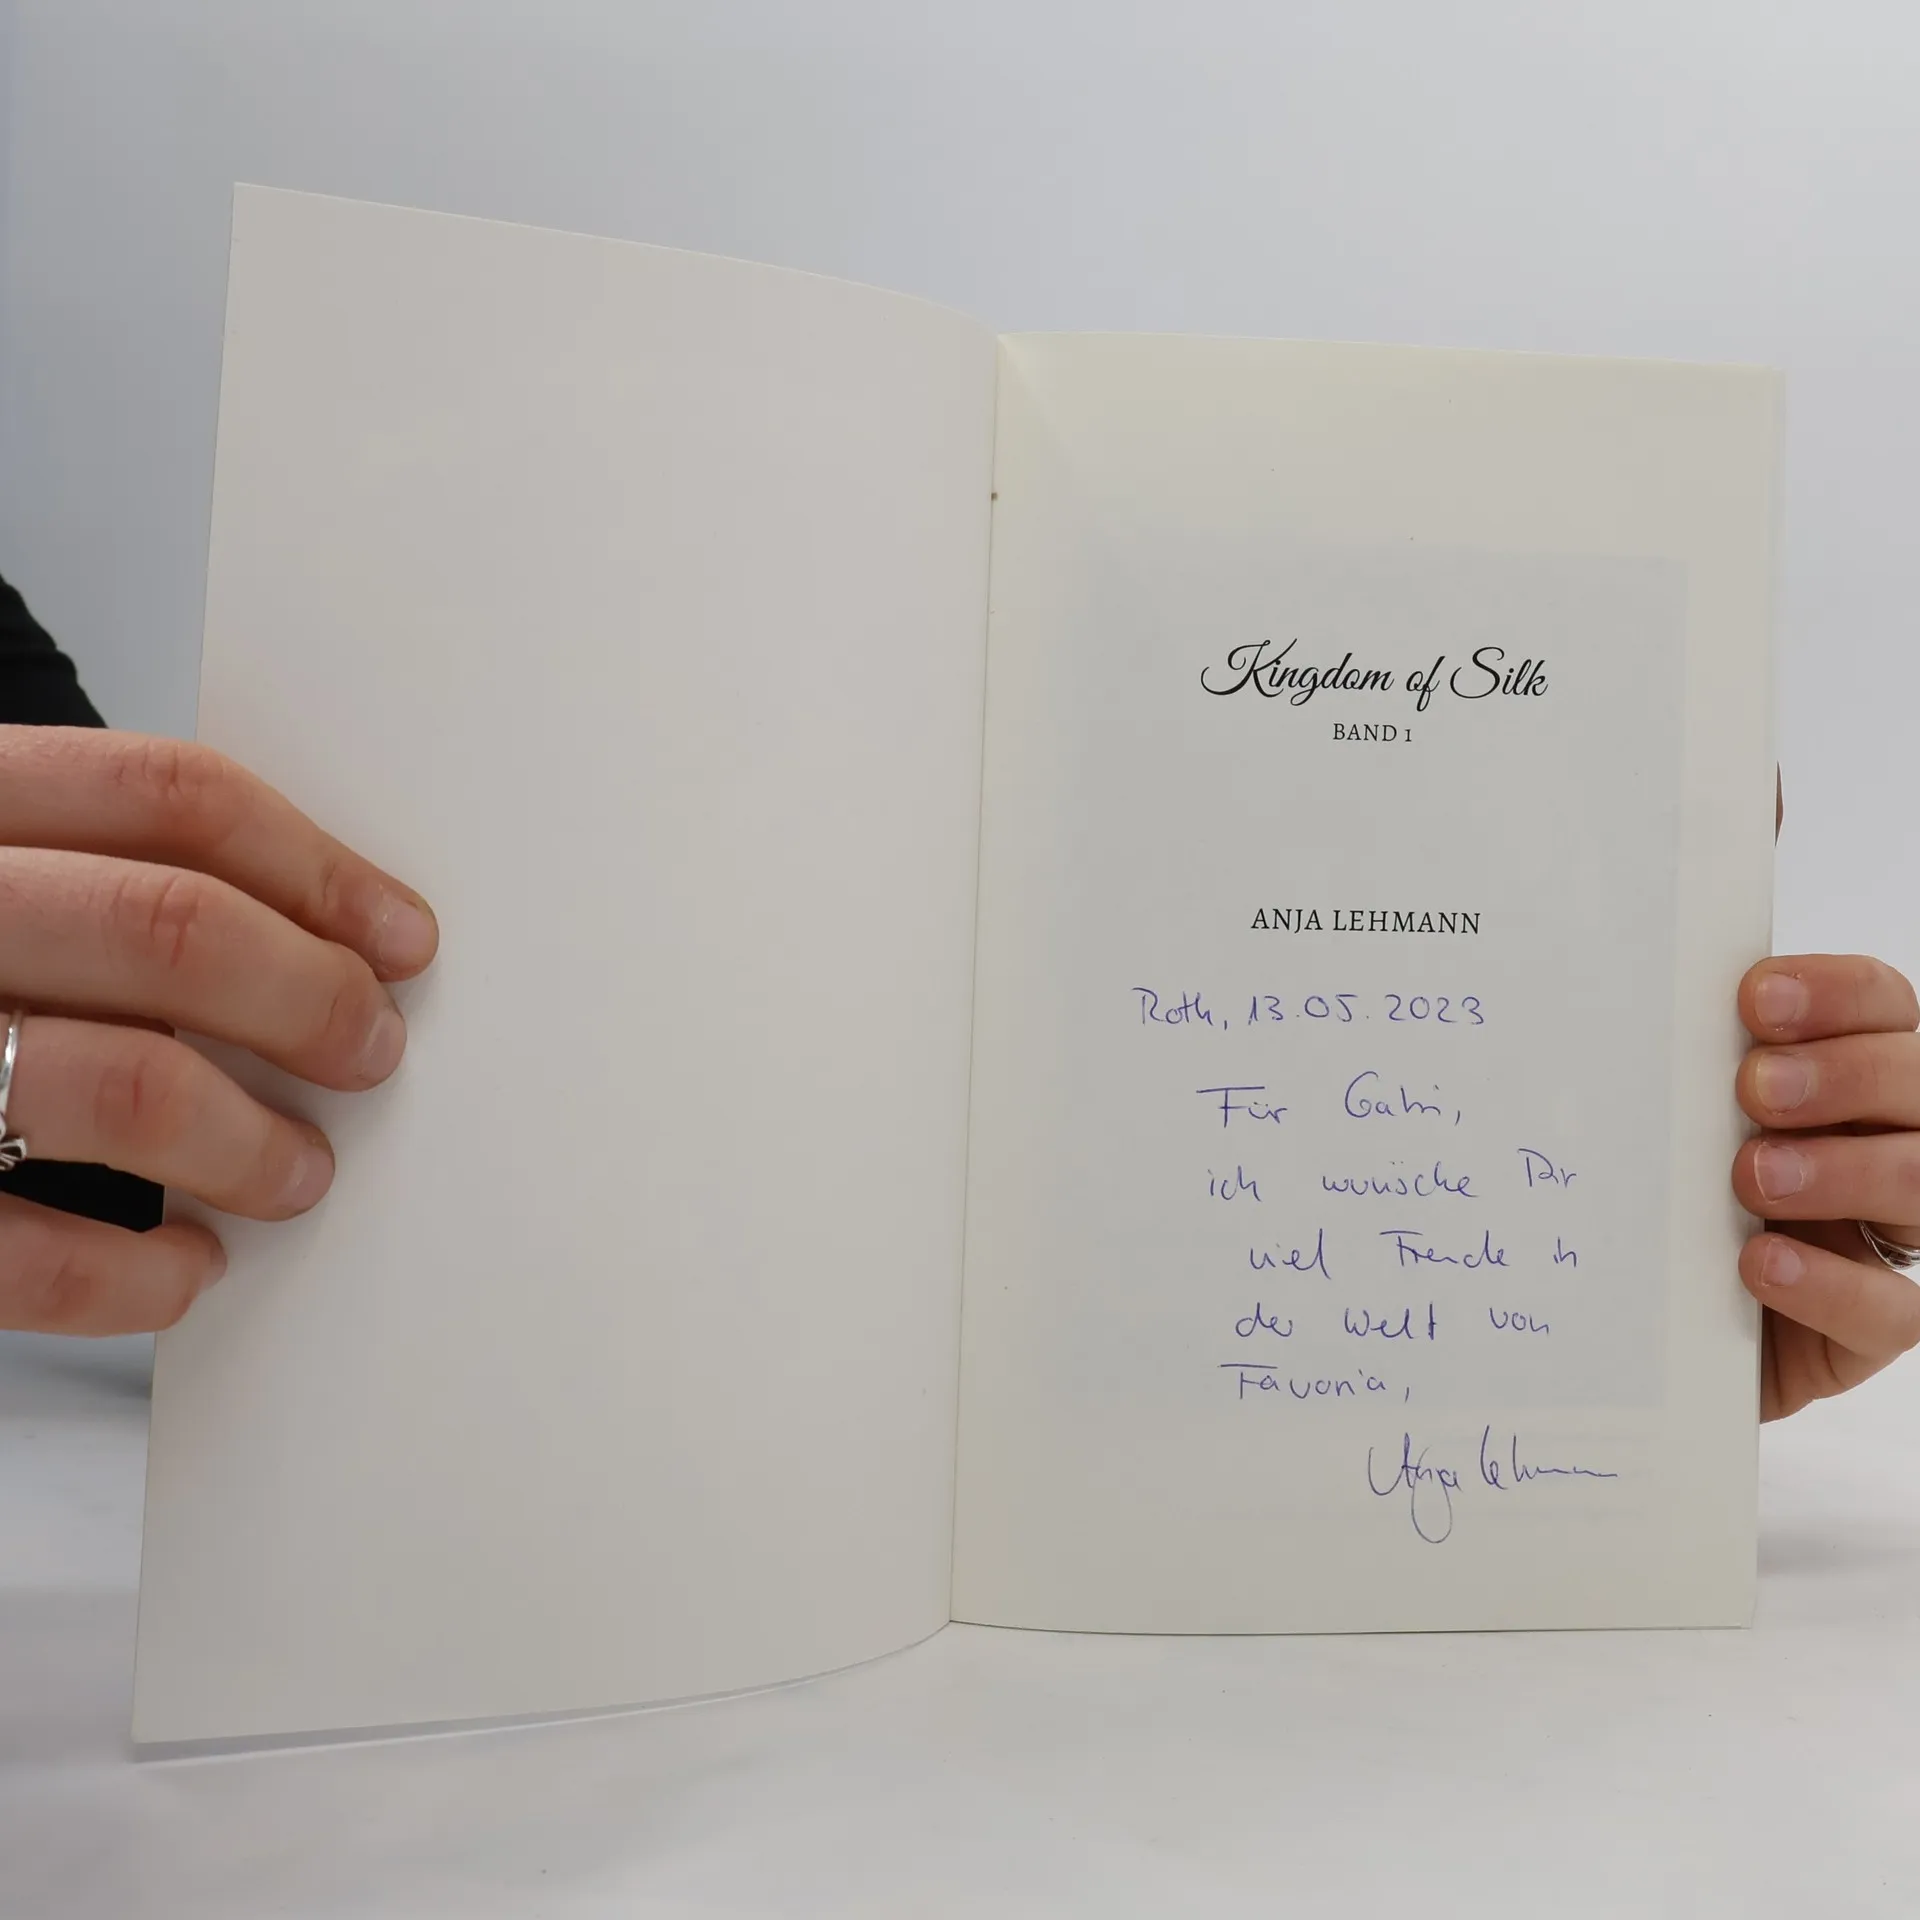 Kingdom of Silk
BAND 1
ANJA LEHMANN
Roth, 13.05.2023
Für Gabi,
ich wünsche Dir
viel Freude in
der Welt von
Favoria,
Anja Lehmann